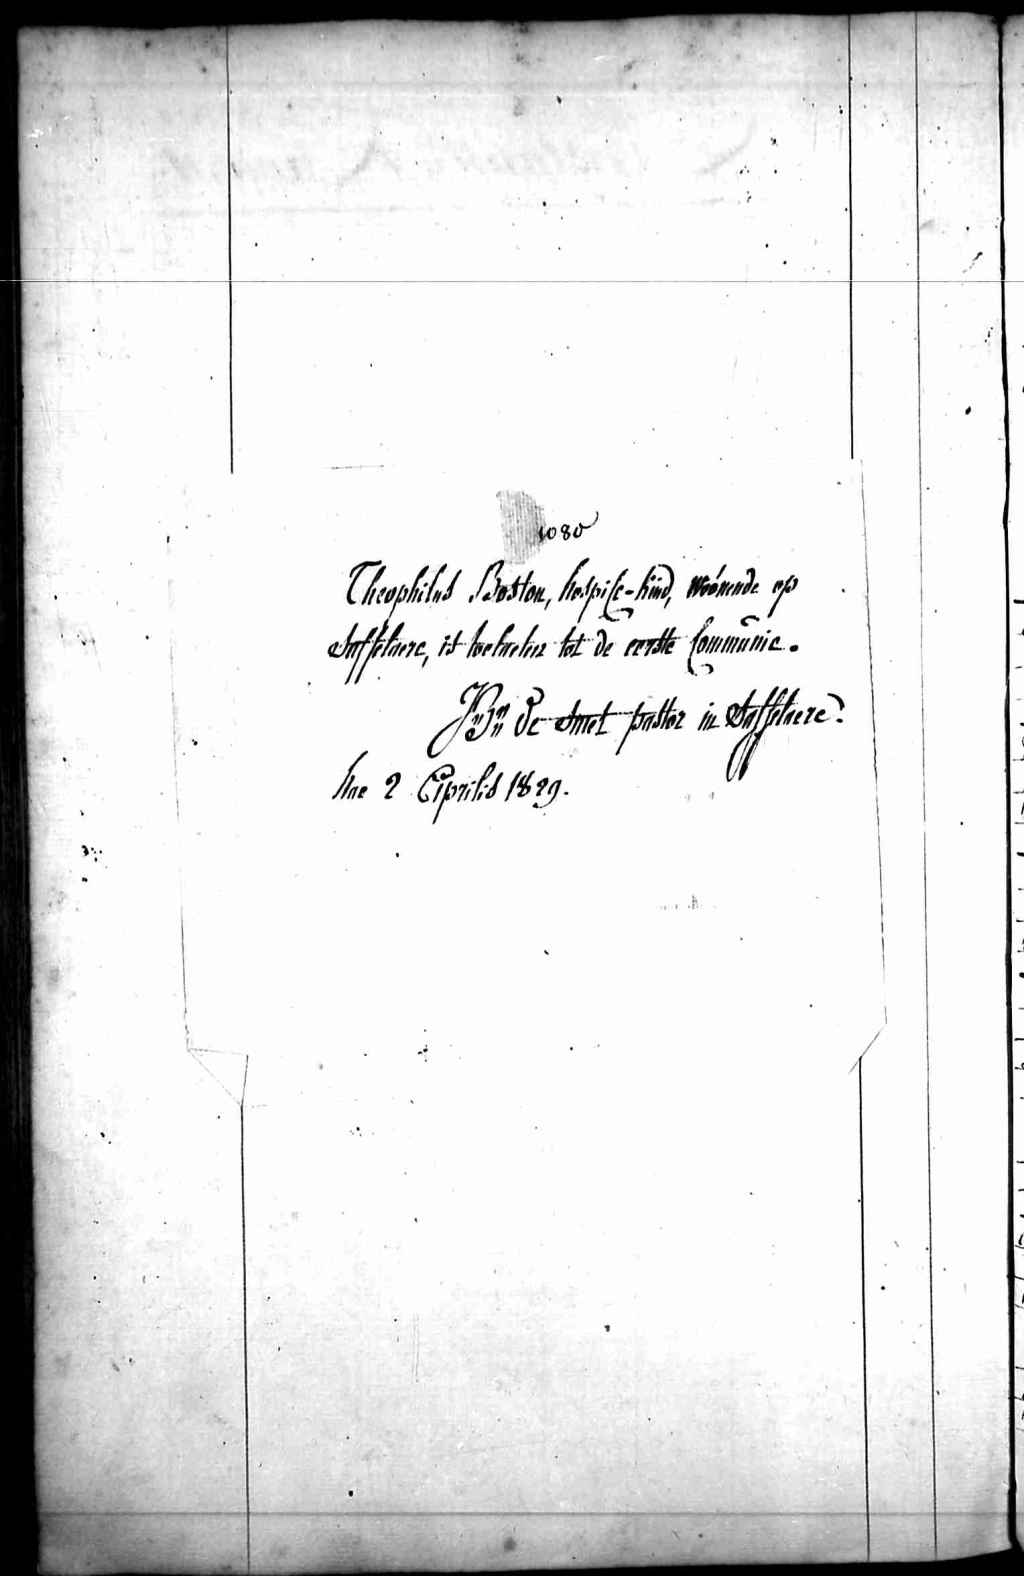 1080
Theophilus Boston, hospice-kind, woónende op
Saffelaere, is toelaeten tot de eerste Communie.
de Smet pastor in Saffelaere.
hac 2 Aprilis 1829.